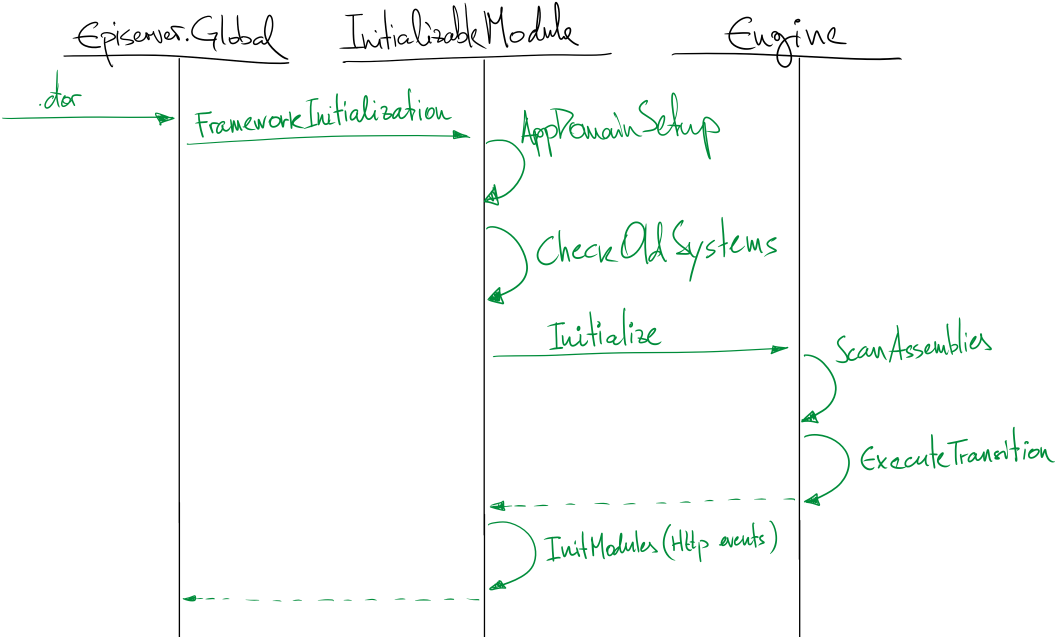 Episerver.Global
InitializableModule
Engine
.ctor
FrameworkInitialization
AppDomainSetup
CheckOldSystems
Initialize
ScanAssemblies
ExecuteTransition
InitModules (Http events)